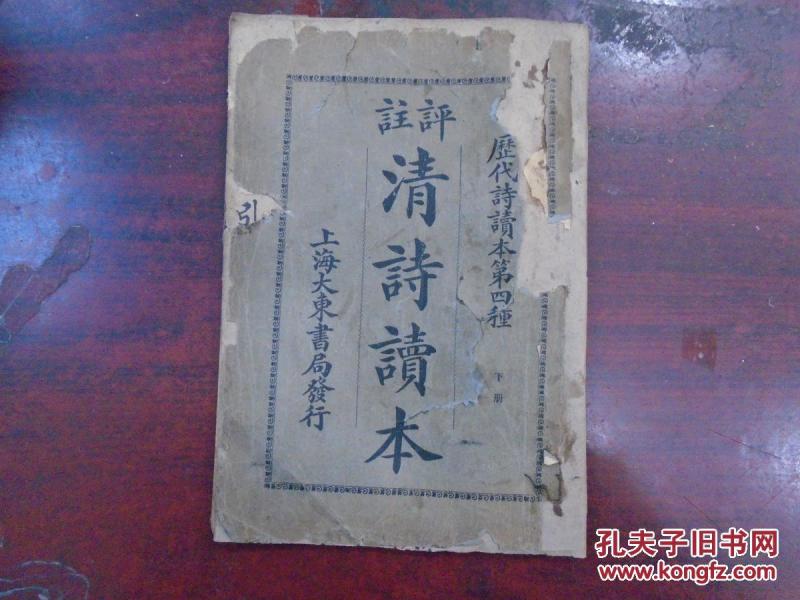 歷代詩讀本第四種
下册
評註
清詩讀本
上海大東書局發行
引
孔夫子旧书网
www.kongfz.com